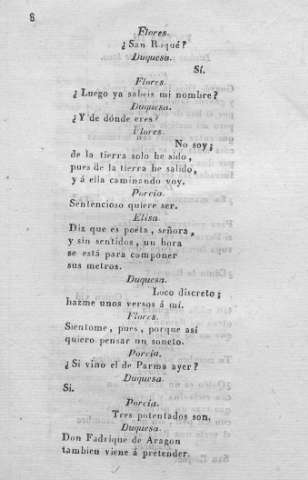 8
Flores.
¿San Roqué?
Duquesa.
Sí.
Flores.
¿Luego ya sabeis mi nombre?
Duquesa.
¿Y de dónde eres?
Flores.
No soy;
de la tierra solo he sido,
pues de la tierra he salido,
y á ella caminando voy.
Porcia.
Sentencioso quiere ser.
Elisa.
Diz que es poeta, señora,
y sin sentidos, un hora
se está para componer
sus metros.
Duquesa.
Loco discreto;
hazme unos versos á mí.
Flores.
Sientome, pues, porque así
quiero pensar un soneto.
Porcia.
¿Si vino el de Parma ayer?
Duquesa.
Si.
Porcia.
Tres potentados son.
Duquesa.
Don Fadrique de Aragon
tambien viene á pretender.